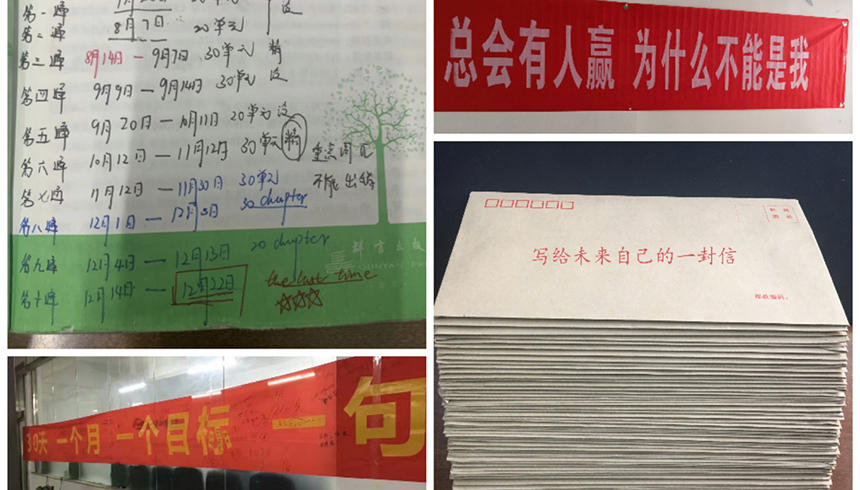 第一遍
8月7日 20单元 没
第二遍
第三遍 8月14日 — 9月7日 30单元 精
第四遍 9月9日 — 9月14日 30单元 没
第五遍 9月20日 — 10月11日 20单元 没
第六遍 10月12日 — 11月12日 30单元 精
重点词见
不能出错
第七遍 11月12日 — 11月30日 30单元
第八遍 12月1日 — 12月3日 30 chapter
第九遍 12月4日 — 12月13日 20 chapter
第十遍 12月14日 — 12月22日 the last time
群言出版
QUNYAN PRESS
总会有人赢 为什么不能是我
写给未来自己的一封信
邮政编码:
30天 一个月 一个目标 一句